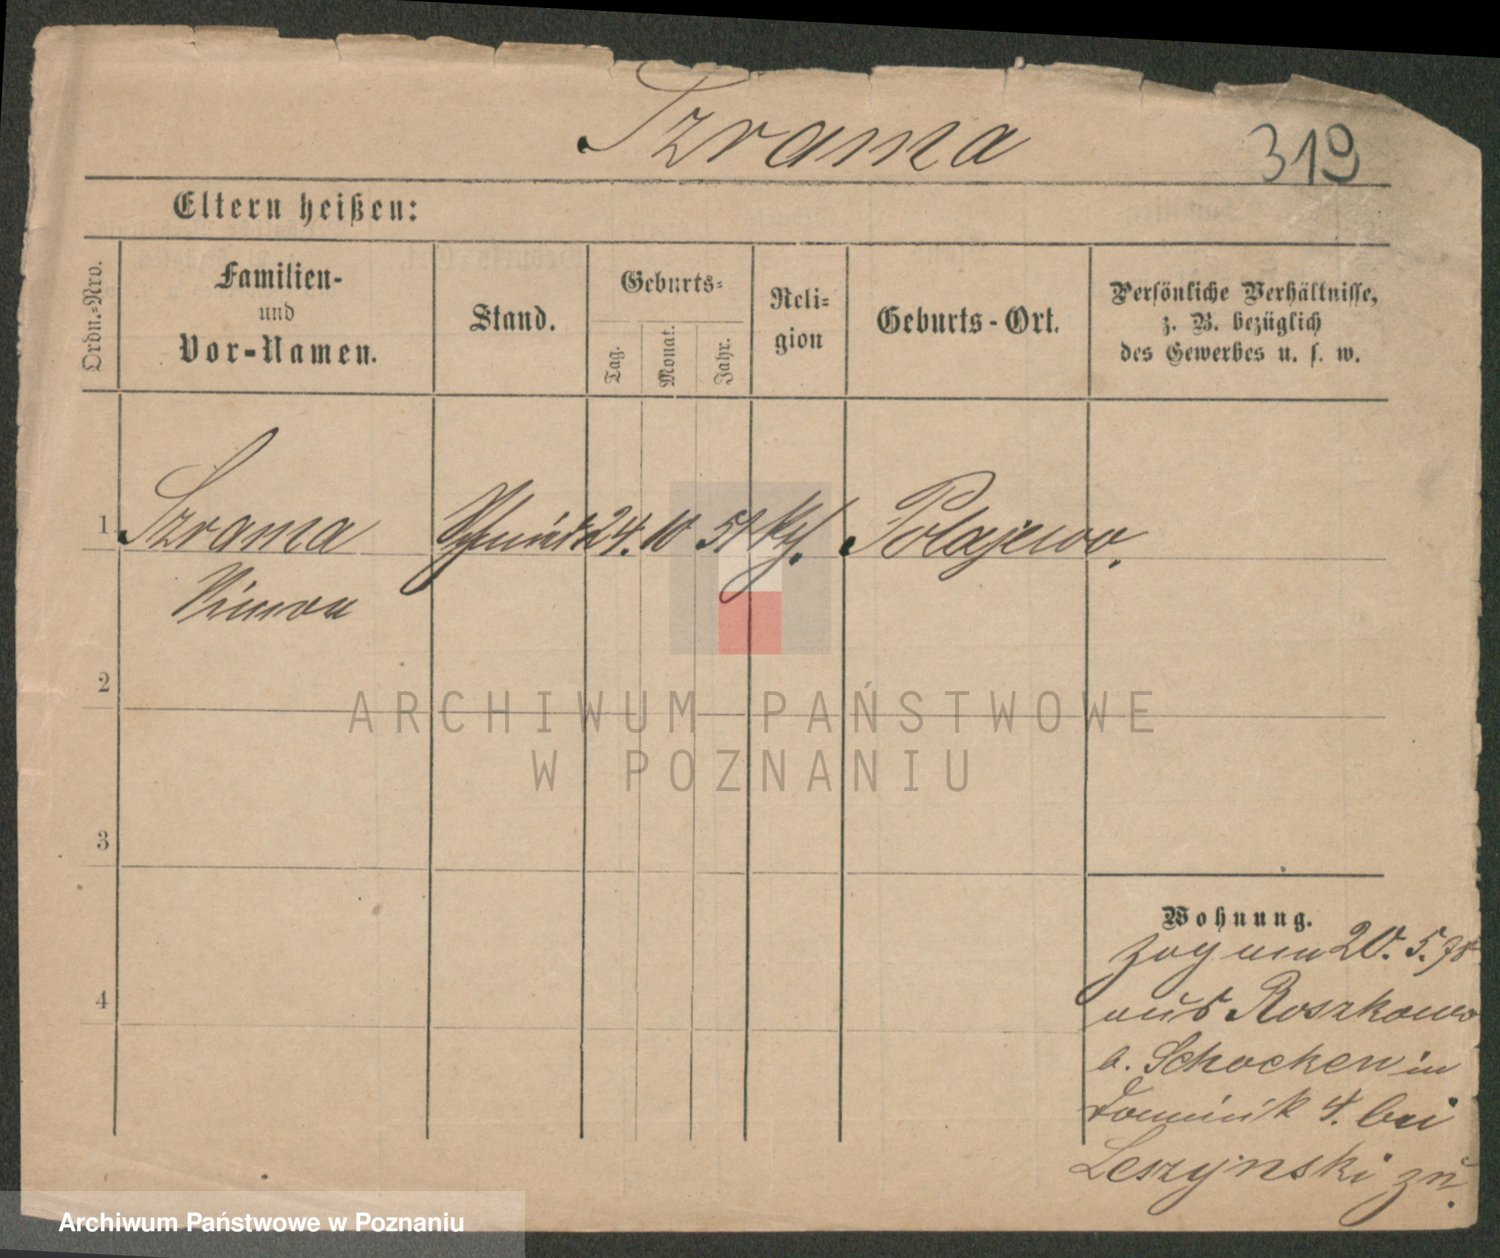 Szrama 319
Eltern heißen:
Ordn.-Nro.
Familien-
und
Vor-Namen.
Stand.
Geburts-
Tag.
Monat.
Jahr.
Reli-
gion
Geburts-Ort.
Persönliche Verhältnisse,
z. B. bezüglich
des Gewerbes u. s. w.
1 Szrama 24. 10 51 Polajewo.
Simon
2
3
4
Wohnung.
zog am 20. 5. 78
aus Roszkowo
b. Schocken in
Dominik 4. bei
Leszynski zu.
ARCHIWUM PAŃSTWOWE
W POZNANIU
Archiwum Państwowe w Poznaniu